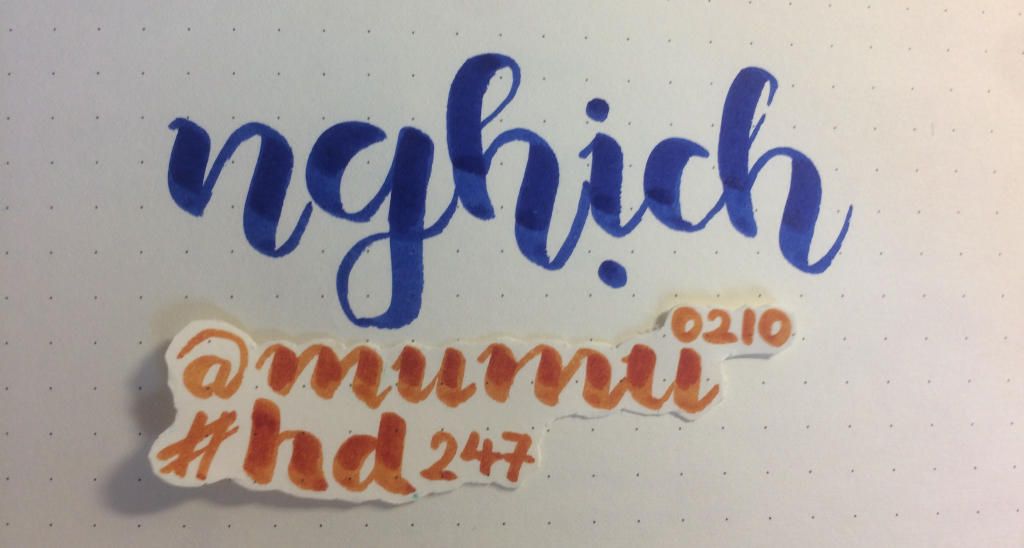 nghịch
@mumu0210
#hd247